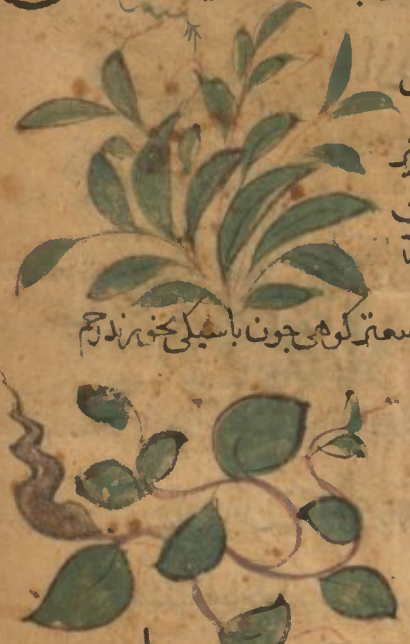 سعتر کوهی چون با سیکی بخورند رحم